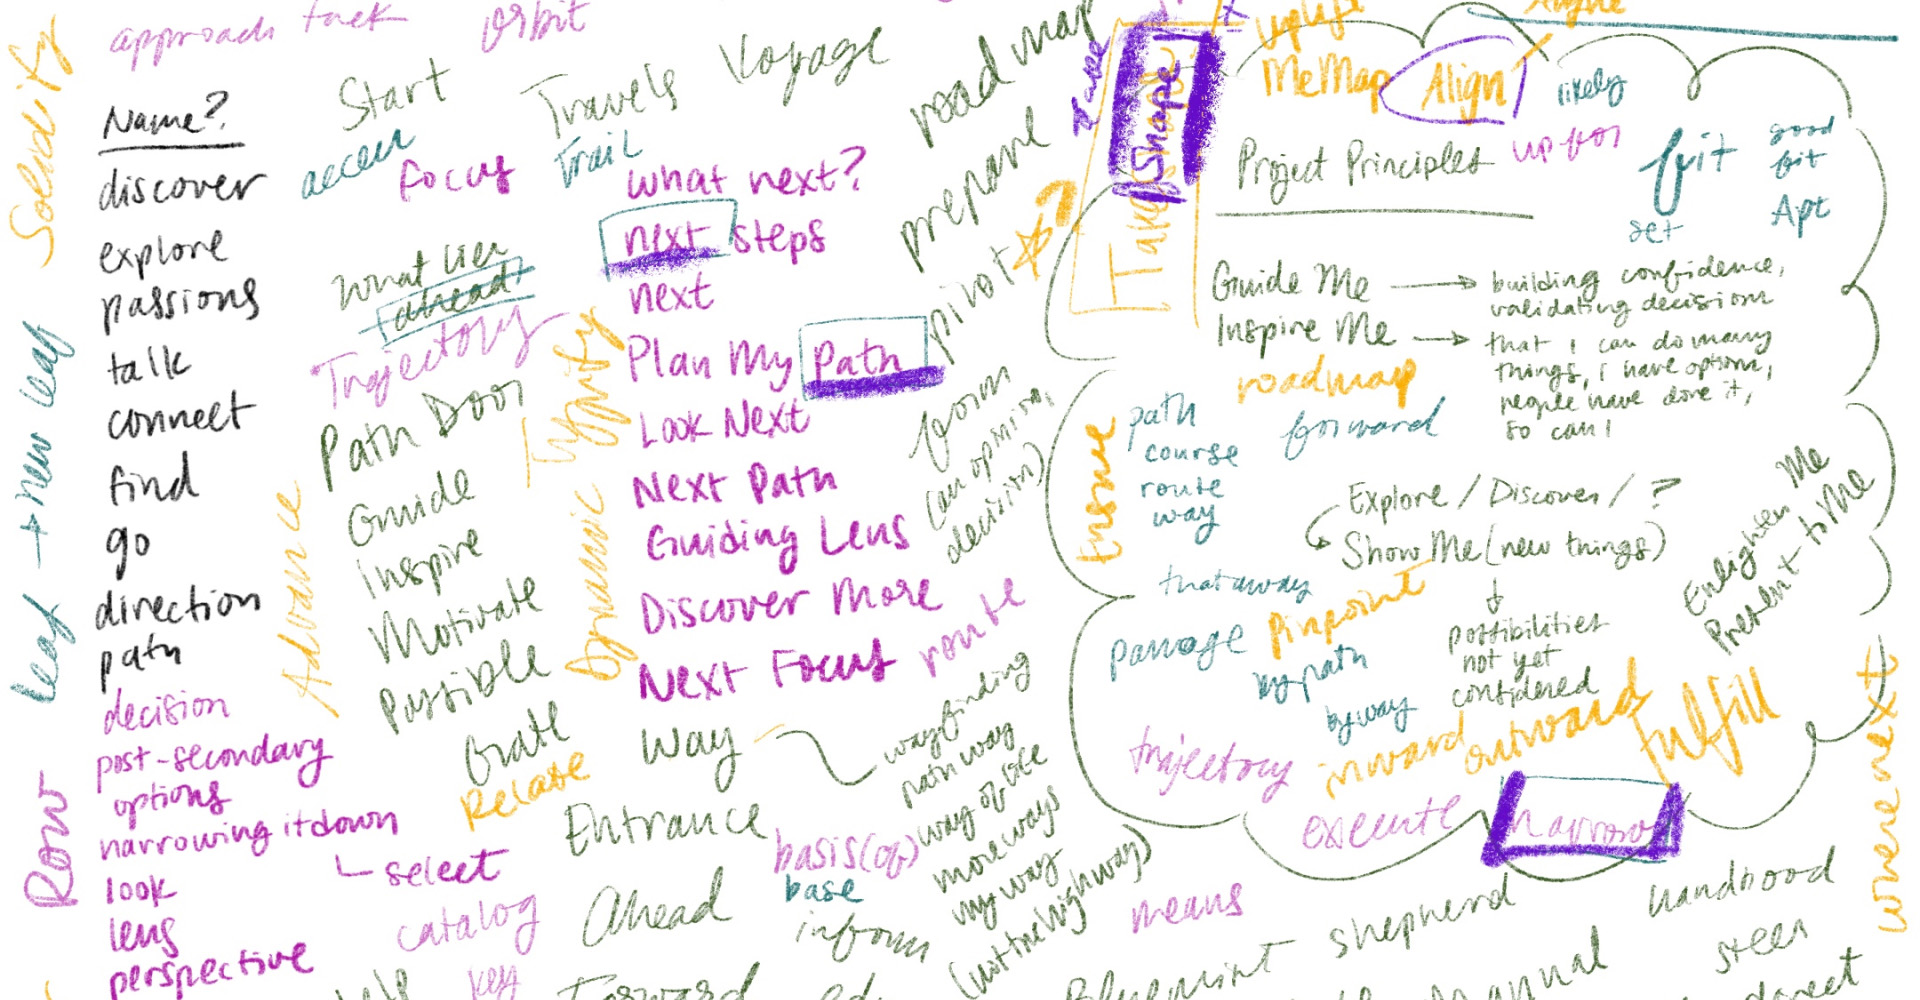 Solidity
leaf → new leaf
Row
approach
tack
orbit
Name?
discover
explore
passions
talk
connect
find
go
direction
path
decision
post-secondary
options
narrowing it down
↳ select
look
lens
perspective
Start
access
Focus
Travels
Trail
Voyage
road map
prepare
pivot
What lies
ahead?
Trajectory
Path Door
Advance
Guide
Inspire
Motivate
Possible
Relate
Dynamic
Typify
what next?
next steps
next
Plan My Path
Look Next
Next Path
Guiding Lens
Discover More
Next Focus
route
form
(an opinion,
decision)
Way
wayfinding
pathway
way of life
more ways
my way
(not the highway)
Entrance
basis (of)
base
inform
Ahead
catalog
key
help
Forward
Take Shape
Uplift
MeMap
Align
likely
Project Principles
up for
fit
good
fit
set
Apt
Guide Me → building confidence,
validating decisions
Inspire Me → that I can do many
things, I have options,
people have done it,
so can I
roadmap
forward
path
course
route
way
Ensue
Explore / Discover / ?
Show Me (new things)
possibilities
not yet
considered
Enlighten Me
Present to Me
that away
passage
Pinpoint
by path
byway
trajectory
inward
outward
fulfill
execute
narrow
where next
means
shepherd
Blueprint
manual
steer